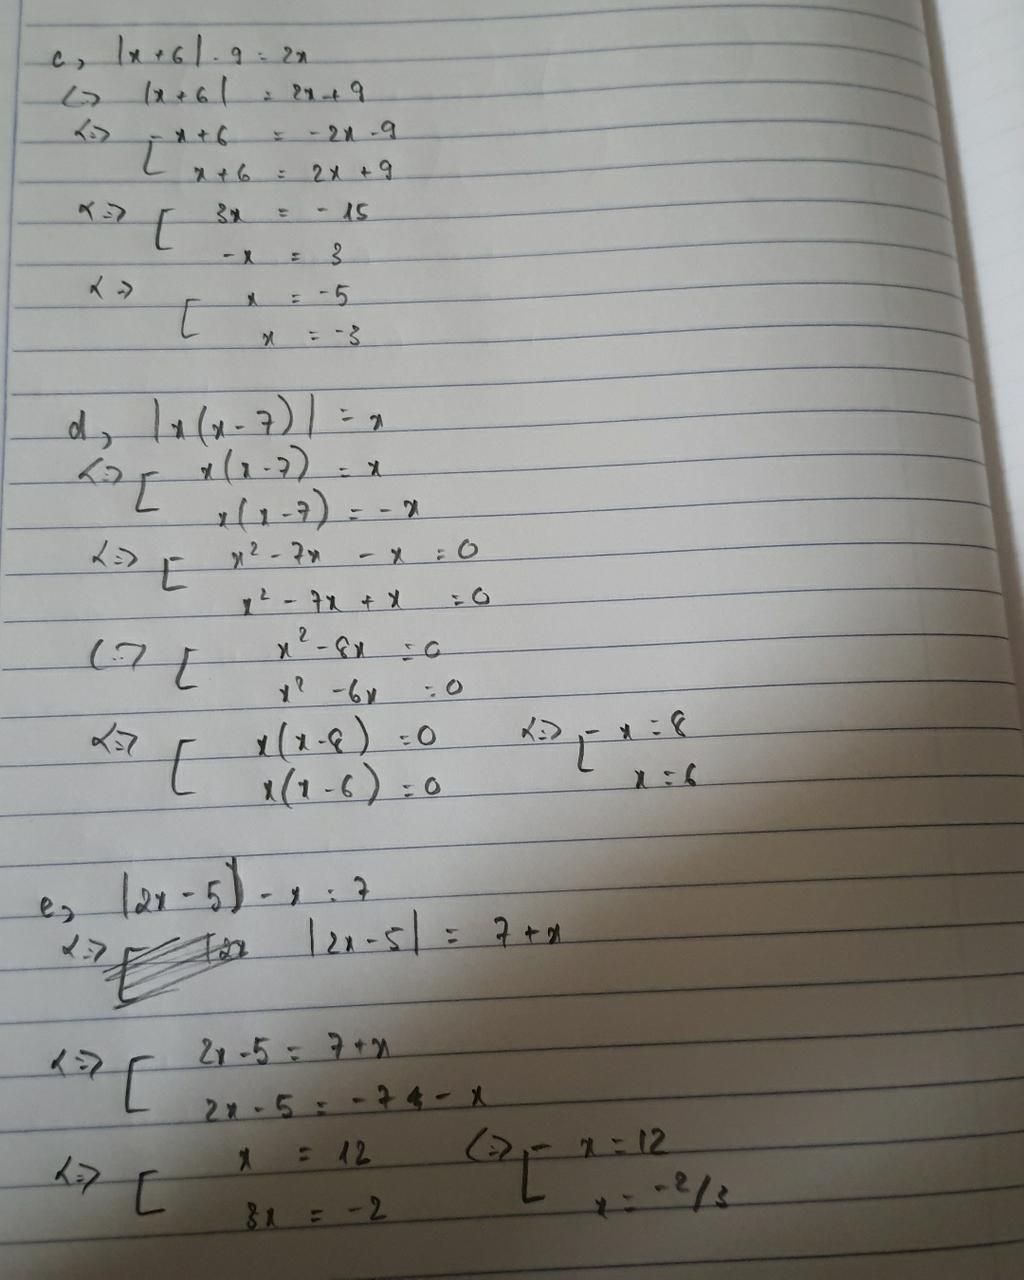 c, |x+6| - 9 = 2x
<=> |x+6| = 2x+9
<=> [ x+6 = -2x-9
x+6 = 2x+9
<=> [ 3x = -15
-x = 3
<=> [ x = -5
x = -3
d, |x(x-7)| = x
<=> [ x(x-7) = x
x(x-7) = -x
<=> [ x² - 7x - x = 0
x² - 7x + x = 0
<=> [ x² - 8x = 0
x² - 6x = 0
<=> [ x(x-8) = 0 <=> [ x = 8
x(x-6) = 0 x = 6
e, |2x-5| - x = 7
<=> |2x-5| = 7+x
<=> [ 2x-5 = 7+x
2x-5 = -7-x
<=> [ x = 12 <=> [ x = 12
3x = -2 x = -2/3